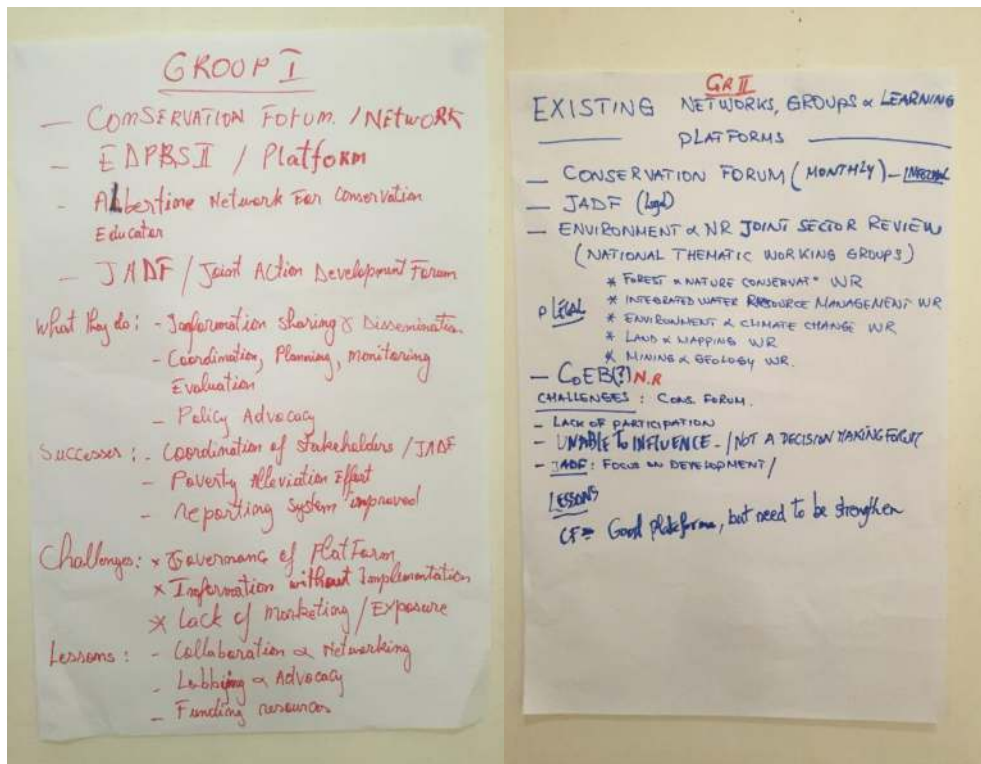 GROOP I
— CONSERVATION FORUM / NETWORK
— EDPRSII / Platform
- Albertine Network For Conservation
Educator
— JADF / Joint Action Development Forum
What they do: - Information sharing & Dissemination
- Coordination, Planning, monitoring
Evaluation
- Policy Advocacy
Successes: - Coordination of stakeholders / JADF
- Poverty Alleviation Effect
- reporting system improved
Challenges: x Governance of PlatForm
x Information without Implementation
x Lack of marketing / Exposure
Lessons: - Collaboration & Networking
- Lobbying & Advocacy
- Funding resources
GR II
EXISTING NETWORKS, GROUPS & LEARNING
PLATFORMS
— CONSERVATION FORUM (MONTHLY) - INFORMAL
— JADF (Legal)
— ENVIRONMENT & NR JOINT SECTOR REVIEW
(NATIONAL THEMATIC WORKING GROUPS)
* FOREST & NATURE CONSERVAT° WR
* INTEGRATED WATER RESOURCE MANAGEMENT WR
LEGAL
* ENVIRONMENT & CLIMATE CHANGE WR
* LAND & MAPPING WR
* MINING & GEOLOGY WR.
— CoEB(?) N.R
CHALLENGES : CONS. FORUM.
- LACK OF PARTICIPATION
- UNABLE TO INFLUENCE - / NOT A DECISION MAKING FORUM
- JADF : FOCUS ON DEVELOPMENT /
LESSONS
CF = Good Plateforme, but need to be strengthen